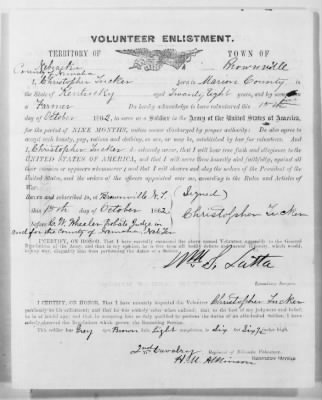 VOLUNTEER ENLISTMENT.
TERRITORY OF TOWN OF
Nebraska Brownville
County Nemaha
I, Christopher Tucker born in Marion County in
the State of Kentucky aged Twenty Eight years, and by
a Farmer Do hereby acknowledge to have volunteered this 18th
day of October 1862, to serve as a Soldier in the Army of the United States of America,
for the period of NINE MONTHS, unless sooner discharged by proper authority: Do also agree to
accept such bounty, pay, rations and clothing, as are, or may be, established by law for volunteers. And
I, Christopher Tucker do solemnly swear, that I will bear true faith and allegiance to the
UNITED STATES OF AMERICA, and that I will serve them honestly and faithfully against all
their enemies or opposers whomsoever; and that I will observe and obey the orders of the President of the
United States, and the orders of the officers appointed over me, according to the Rules and Articles of
War.
Sworn and subscribed to, at Brownville N.T. (Signed)
this 18th day of October 1862 Christopher Tucker
before C.W. Wheeler probate Judge in
and for the County of Nemaha Neb Ter
I CERTIFY, ON HONOR, That I have carefully examined the above named Volunteer agreeably to the General
Regulations of the Army, and that in my opinion, he is free from all bodily defects and mental infirmity, which would, in
any way, disqualify him from performing the duties of a soldier.
Wm S. Latta
Examining Surgeon.
I CERTIFY, ON HONOR, That I have minutely inspected the Volunteer Christopher Tucker
previously to his enlistment, and that he was entirely sober when enlisted; that, to the best of my judgment and belief,
he is of lawful age; and that, in accepting him as duly qualified to perform the duties of an able-bodied Soldier, I have
strictly observed the Regulations which govern the Recruiting Service.
This soldier has Grey eyes Brown hair Light complexion is Six feet inches high.
2nd Cavalry Regiment of Nebraska Volunteers,
H. M. Atkinson Recruiting Officer